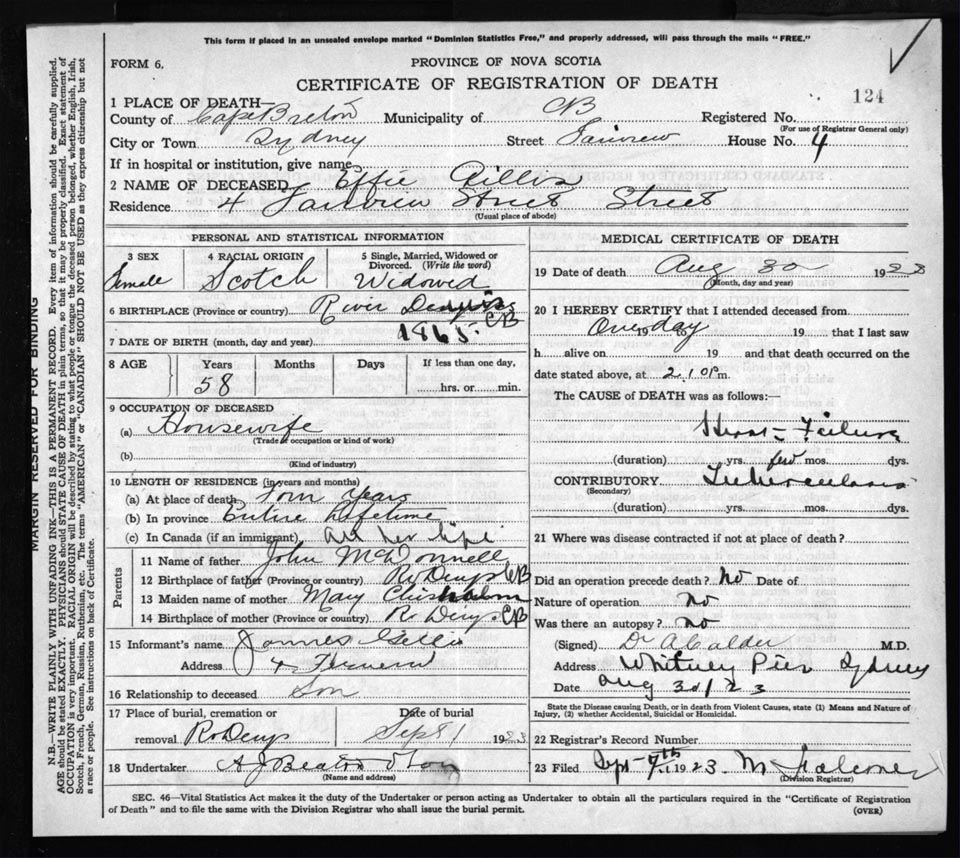 This form if placed in an unsealed envelope marked "Dominion Statistics Free," and properly addressed, will pass through the mails "FREE."
FORM 6.
PROVINCE OF NOVA SCOTIA
CERTIFICATE OF REGISTRATION OF DEATH
124
1 PLACE OF DEATH—
County of Cape Breton Municipality of CB Registered No.
(For use of Registrar General only)
City or Town Sydney Street Fairview House No. 4
If in hospital or institution, give name
2 NAME OF DECEASED Effie Gillis
Residence 4 Fairview Street Street
(Usual place of abode)
PERSONAL AND STATISTICAL INFORMATION
3 SEX 4 RACIAL ORIGIN 5 Single, Married, Widowed or Divorced. (Write the word)
Female Scotch Widowed
6 BIRTHPLACE (Province or country) River Dennis CB
7 DATE OF BIRTH (month, day and year) 1865
8 AGE Years Months Days If less than one day,
58 hrs. or min.
9 OCCUPATION OF DECEASED
(a) Housewife
(Trade occupation or kind of work)
(b)
(Kind of industry)
10 LENGTH OF RESIDENCE (in years and months)
(a) At place of death Four Years
(b) In province Entire Lifetime
(c) In Canada (if an immigrant) All her life
Parents
11 Name of father John McDonnell
12 Birthplace of father (Province or country) Rv Denys CB
13 Maiden name of mother Mary Chisholm
14 Birthplace of mother (Province or country) R. Denys CB
15 Informant's name James Gillis
Address 4
16 Relationship to deceased Son
17 Place of burial, cremation or removal Date of burial
Rv Denys Sept 1 1923
18 Undertaker A J Beaton & Son
(Name and address)
MEDICAL CERTIFICATE OF DEATH
19 Date of death Aug 30 1923
(Month, day and year)
20 I HEREBY CERTIFY that I attended deceased from
One day 19 to 19 that I last saw
h alive on 19 and that death occurred on
date stated above, at 2.10 P m.
The CAUSE of DEATH was as follows:—
Heart Failure
(duration) yrs. few mos. dys.
CONTRIBUTORY Tuberculosis
(Secondary)
(duration) yrs. mos. dys.
21 Where was disease contracted if not at place of death?
Did an operation precede death? No Date of
Nature of operation no
Was there an autopsy? no
(Signed) Dr A Calder M.D.
Address Whitney Pier Sydney
Date Aug 31/23
State the Disease causing Death, or in death from Violent Causes, state (1) Means and Nature of Injury, (2) whether Accidental, Suicidal or Homicidal.
22 Registrar's Record Number
23 Filed Sept 7th 1923 M Falconer
(Division Registrar)
SEC. 46—Vital Statistics Act makes it the duty of the Undertaker or person acting as Undertaker to obtain all the particulars required in the "Certificate of Registration
of Death" and to file the same with the Division Registrar who shall issue the burial permit.
(OVER)
MARGIN RESERVED FOR BINDING
N.B.—WRITE PLAINLY WITH UNFADING INK—THIS IS A PERMANENT RECORD. Every item of information should be carefully supplied.
AGE should be stated EXACTLY. PHYSICIANS should STATE CAUSE OF DEATH in plain terms, so that it may be properly classified. Exact statement of
OCCUPATION is very important. RACIAL ORIGIN will be described by stating to what people or tongue the deceased person belonged, whether English, Irish,
Scotch, French, German, Russian, Ruthenian, etc. The terms "AMERICAN" or "CANADIAN" SHOULD NOT BE USED as they express citizenship but not
a race or people. See instructions on back of Certificate.